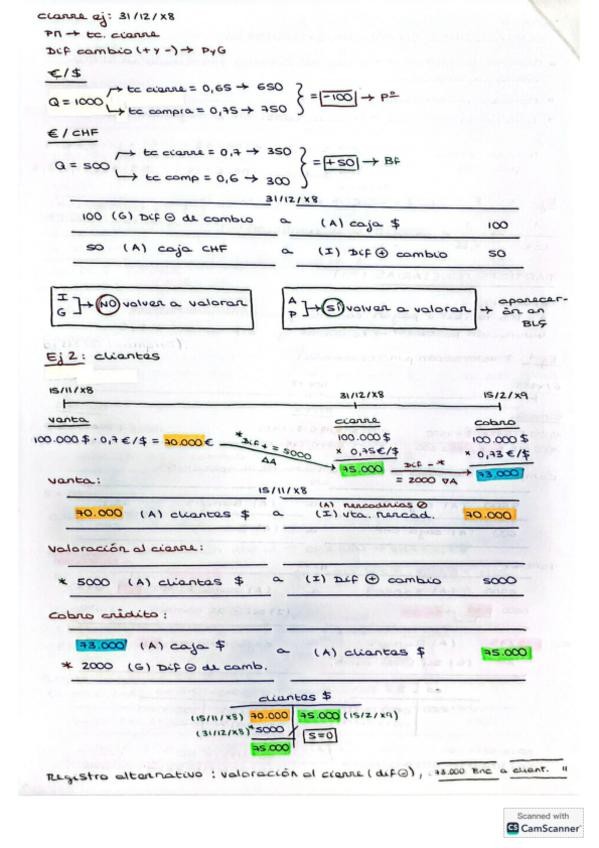 cierre ej: 31/12/x8
PN → tc. cierre
Dif cambio (+ y -) → PyG
€/$
Q = 1000 → tc cierre = 0,65 → 650
→ tc compra = 0,75 → 750
} = -100 → Pº
€ / CHF
Q = 500 → tc cierre = 0,7 → 350
→ tc comp = 0,6 → 300
} = +50 → Bf
31/12/x8
100 (G) Dif ⊖ de cambio a (A) caja $ 100
50 (A) caja CHF a (I) Dif ⊕ cambio 50
I G ] → NO volver a valorar
A P ] → SÍ volver a valorar → aparecer-
án en
BLç
Ej 2: clientes
15/11/x8 31/12/x8 15/2/x9
venta cierre cobro
100.000 $ · 0,7 €/$ = 70.000 € * Dif + = 5000 ΔA 100.000 $ 100.000 $
x 0,75 €/$ x 0,73 €/$
75.000 Dif - * = 2000 ∇A 73.000
venta:
15/11/x8
(A) mercaderías ⊘
70.000 (A) clientes $ a (I) vta. mercad. 70.000
valoración al cierre:
* 5000 (A) clientes $ a (I) Dif ⊕ cambio 5000
cobro crédito:
73.000 (A) caja $ a (A) clientes $ 75.000
* 2000 (G) Dif ⊖ de camb.
clientes $
(15/11/x8) 70.000 75.000 (15/2/x9)
(31/12/x8) * 5000 S=0
75.000
Registro alternativo: valoración al cierre (dif ⊖), 73.000 Bnc a client. "
Scanned with
CS CamScanner